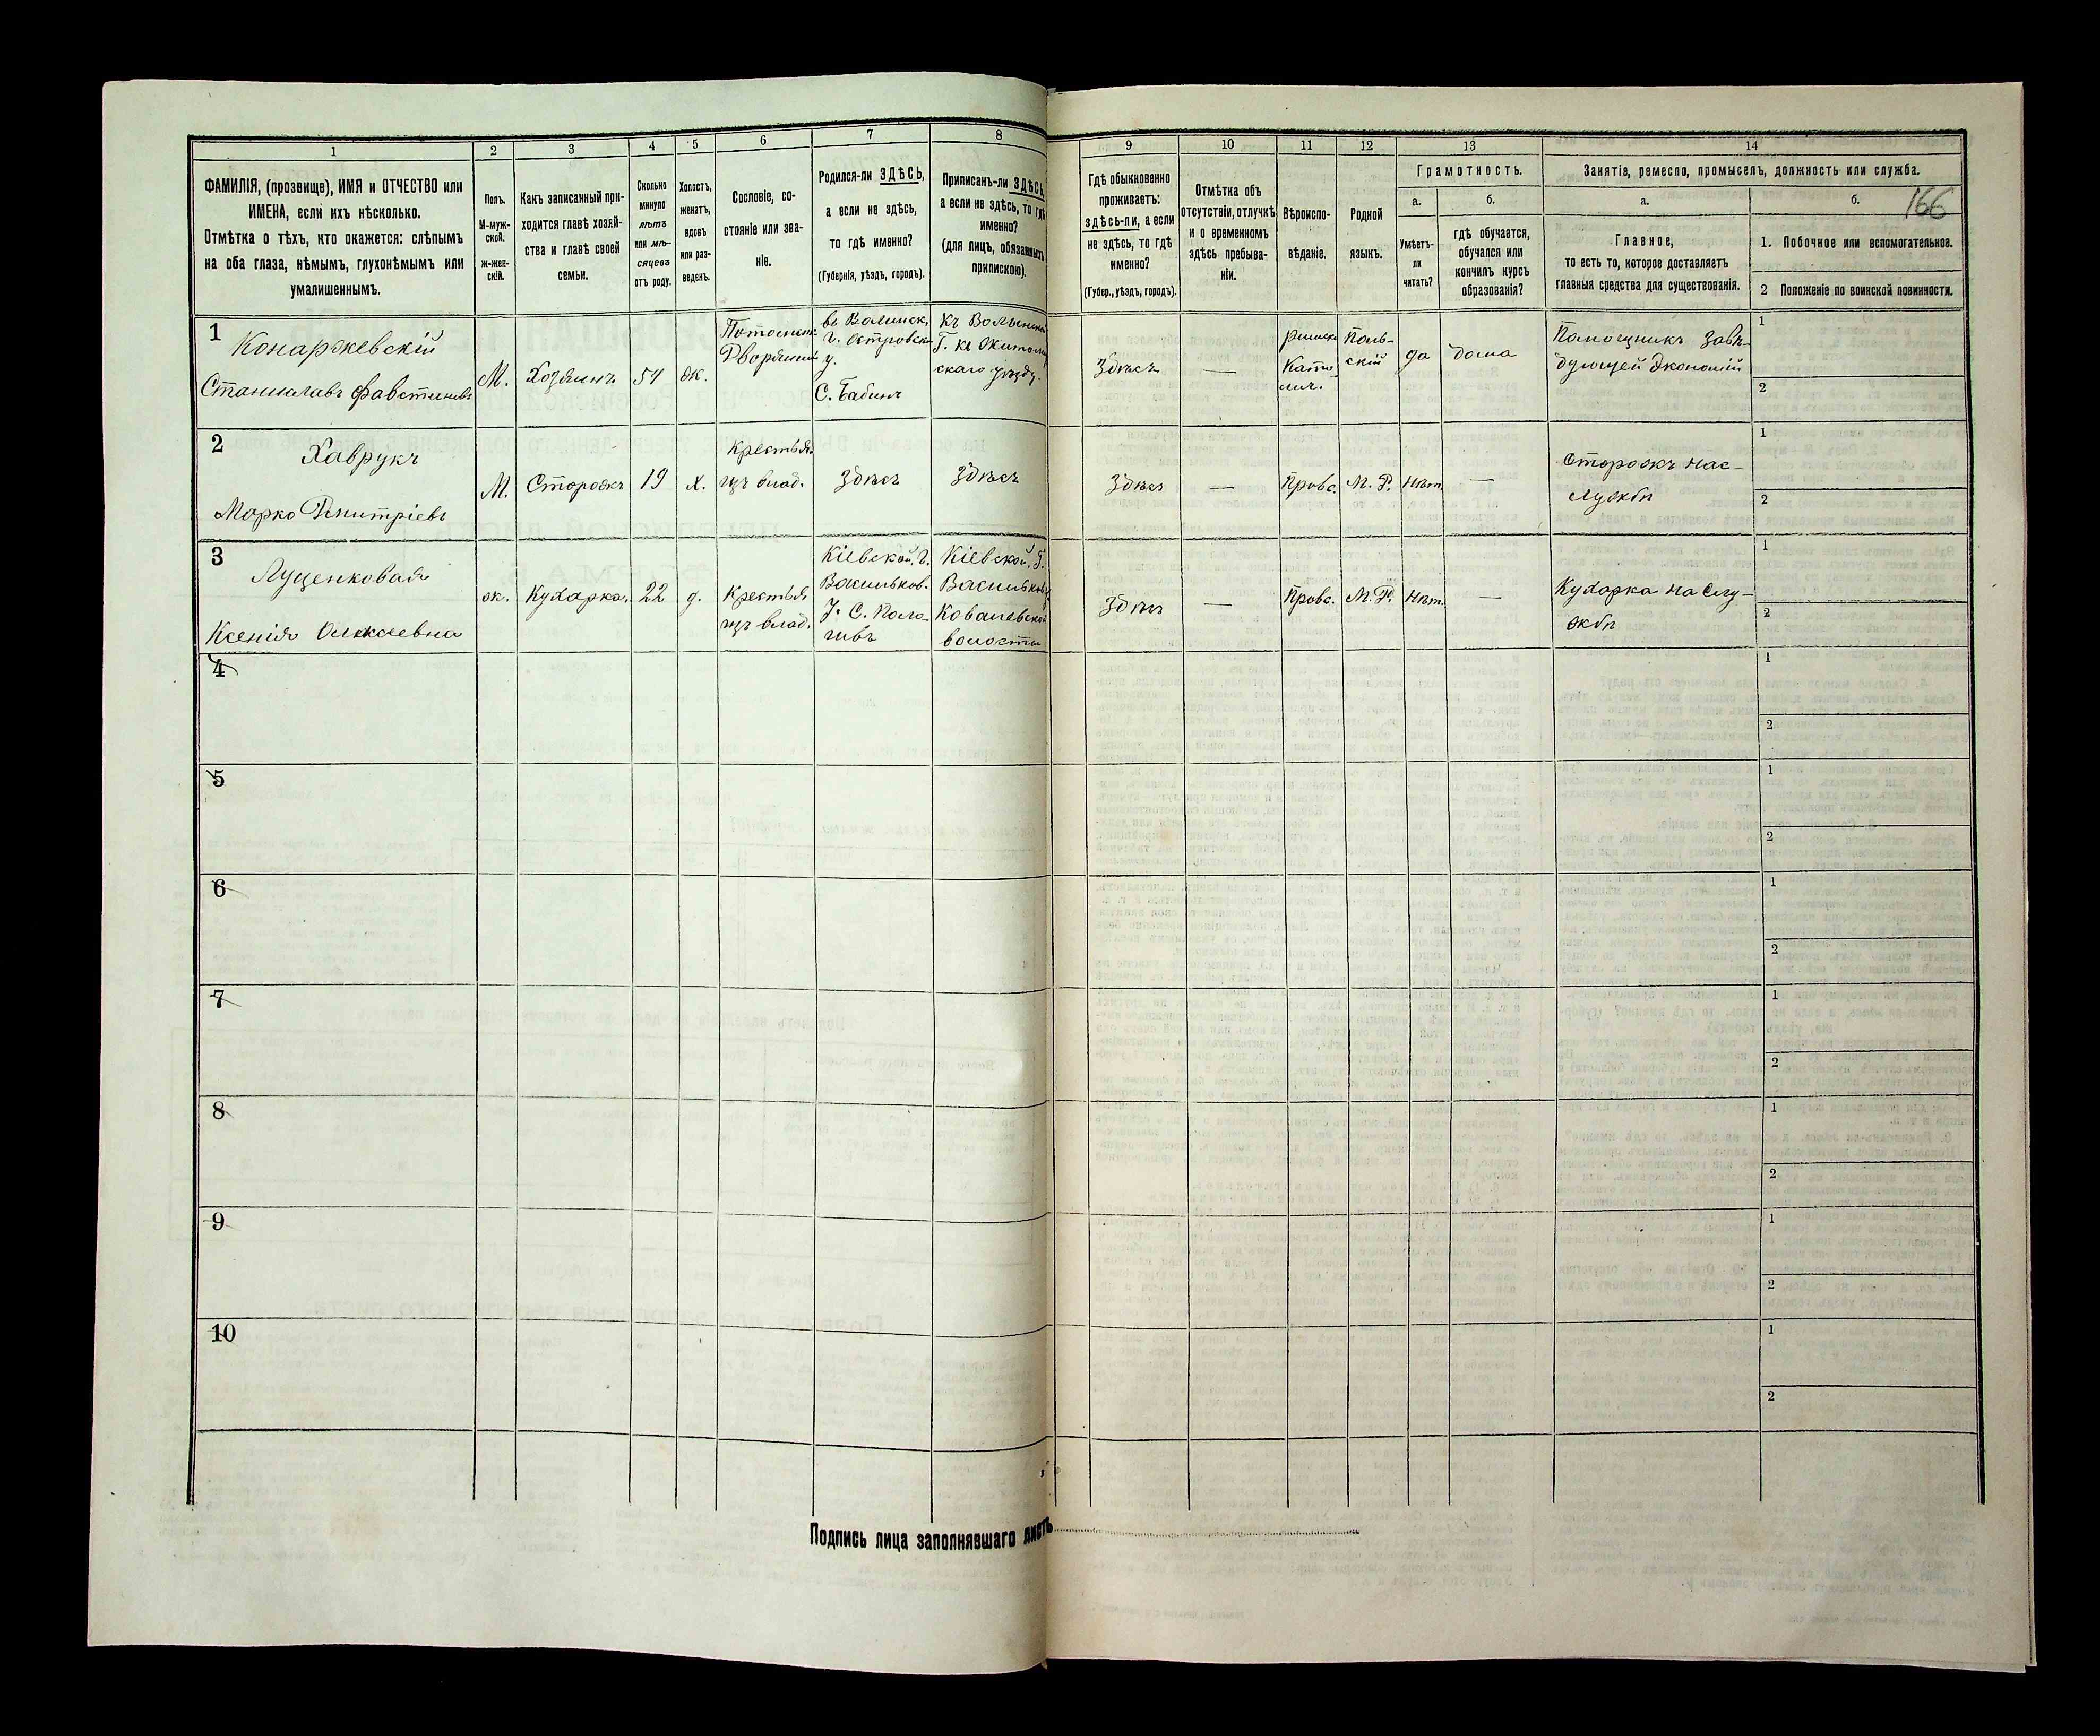 1
ФАМИЛІЯ, (прозвище), ИМЯ и ОТЧЕСТВО или
ИМЕНА, если ихъ нѣсколько.
Отмѣтка о тѣхъ, кто окажется: слѣпымъ
на оба глаза, нѣмымъ, глухонѣмымъ или
умалишеннымъ.
2
Полъ.
М-муж-
ской.
ж-жен-
скій.
3
Какъ записанный при-
ходится главѣ хозяй-
ства и главѣ своей
семьи.
4
Сколько
минуло
лѣтъ
или мѣ-
сяцевъ
отъ роду.
5
Холостъ,
женатъ,
вдовъ
или раз-
веденъ.
6
Сословіе, со-
стояніе или зва-
ніе.
7
Родился-ли ЗДѢСЬ,
а если не здѣсь,
то гдѣ именно?
(Губернія, уѣздъ, городъ).
8
Приписанъ-ли ЗДѢСЬ,
а если не здѣсь, то гдѣ
именно?
(для лицъ, обязанныхъ
припискою).
9
Гдѣ обыкновенно
проживаетъ:
здѣсь-ли, а если
не здѣсь, то гдѣ
именно?
(Губер., уѣздъ, городъ).
10
Отмѣтка объ
отсутствіи, отлучкѣ
и о временномъ
здѣсь пребыва-
ніи.
11
Вѣроиспо-
вѣданіе.
12
Родной
языкъ.
13
Грамотность.
а.
Умѣетъ-
ли
читать?
б.
гдѣ обучается,
обучался или
кончилъ курсъ
образованія?
14
Занятіе, ремесло, промыселъ, должность или служба.
а.
Главное,
то есть то, которое доставляетъ
главныя средства для существованія.
б.
166
1. Побочное или вспомогательное.
2 Положеніе по воинской повинности.
1
Конаржевскій
Станиславъ Фавстиновъ
М.
Хозяинъ
54
ж.
Потомств.
Дворянинъ
въ Волынск.
Г. Островск.
у.
С. Бабинъ
Къ Волынской
Г. къ Житомир
скаго уѣзду.
Здѣсь
—
римско
Като
лич.
Поль-
скій
да
дома
Помощникъ Завѣ-
дующей Экономій
1
2
2
Хаврукъ
Марко Дмитріевъ
М.
Сторожъ
19
х.
Крестья.
изъ влад.
Здѣсь
Здѣсь
Здѣсь
—
Правс.
М. Р.
Нѣт.
—
Сторожъ на с-
лужбѣ
1
2
3
Луценковая
Ксенія Алексеевна
ж.
Кухарка.
22
д.
Крестья
изъ влад.
Кіевской, Г.
Васильков.
У. С. Поло-
гивъ
Кіевской, Г.
Васильков. у
Ковалевской
волости
Здѣсь
—
Правс.
М. Р.
Нѣт.
—
Кухарка на Слу-
жбѣ
1
2
4
1
2
5
1
2
6
1
2
7
1
2
8
1
2
9
1
2
10
1
2
Подпись лица заполнявшаго листъ